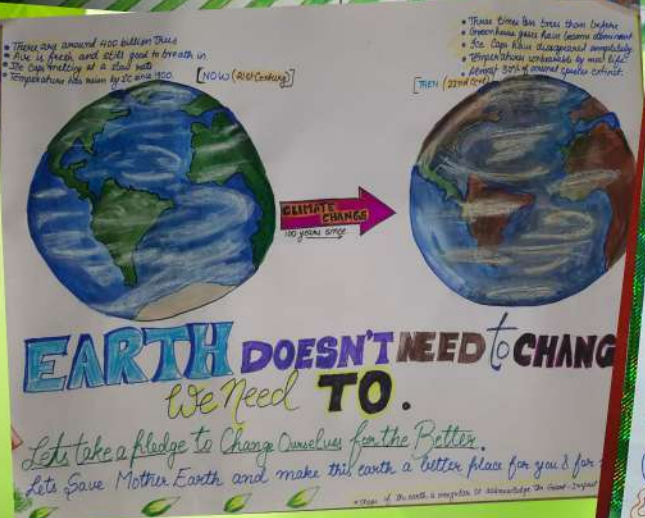 • There are around 400 billion Trees
• Air is fresh and still good to breath in.
• Ice Caps melting at a slow rate
• Temperature has risen by 2C since 1900.
[NOW (21st Century)]
• Three times less trees than before
• Greenhouse gases have become dominant
• Ice Caps have disappeared completely.
• Temperatures unbearable by most life.
• Almost 30% of animal species extinct.
[THEN (22nd Cent)
CLIMATE CHANGE
100 years since
EARTH DOESN'T NEED to CHANG
We Need TO.
Lets take a pledge to Change Ourselves for the Better.
Lets Save Mother Earth and make this earth a better place for you & for
of the earth is to acknowledge the Impact